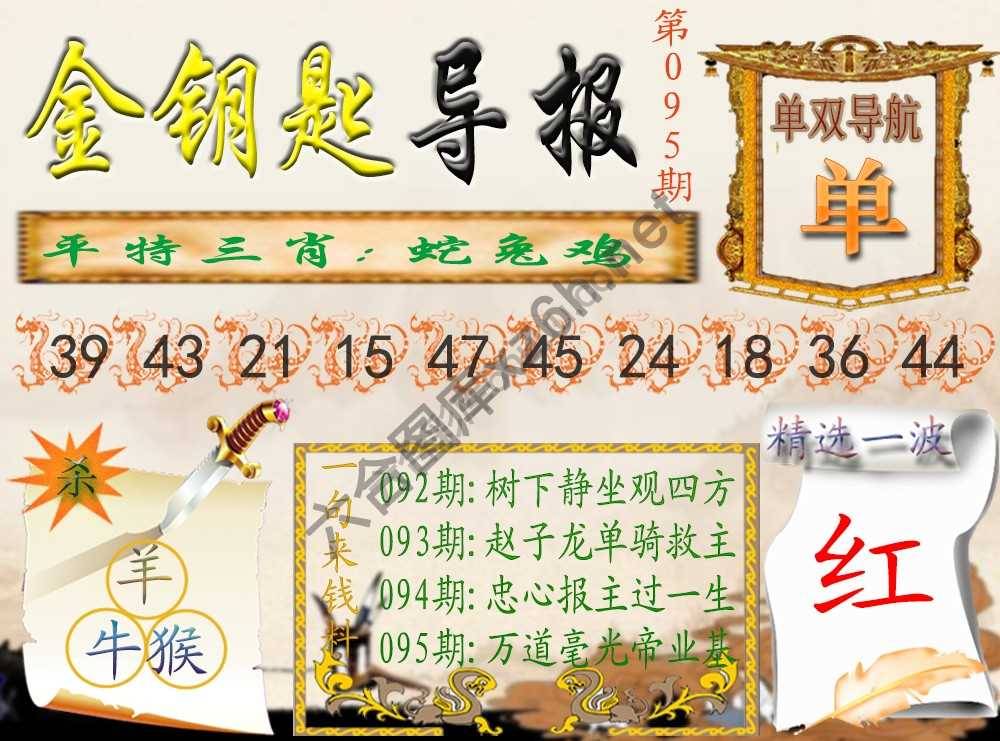 金钥匙导报
第095期
单双导航
单
平特三肖:蛇兔鸡
39 43 21 15 47 45 24 18 36 44
杀
羊
牛 猴
一句来钱料
092期:树下静坐观四方
093期:赵子龙单骑救主
094期:忠心报主过一生
095期:万道毫光帝业基
精选一波
红